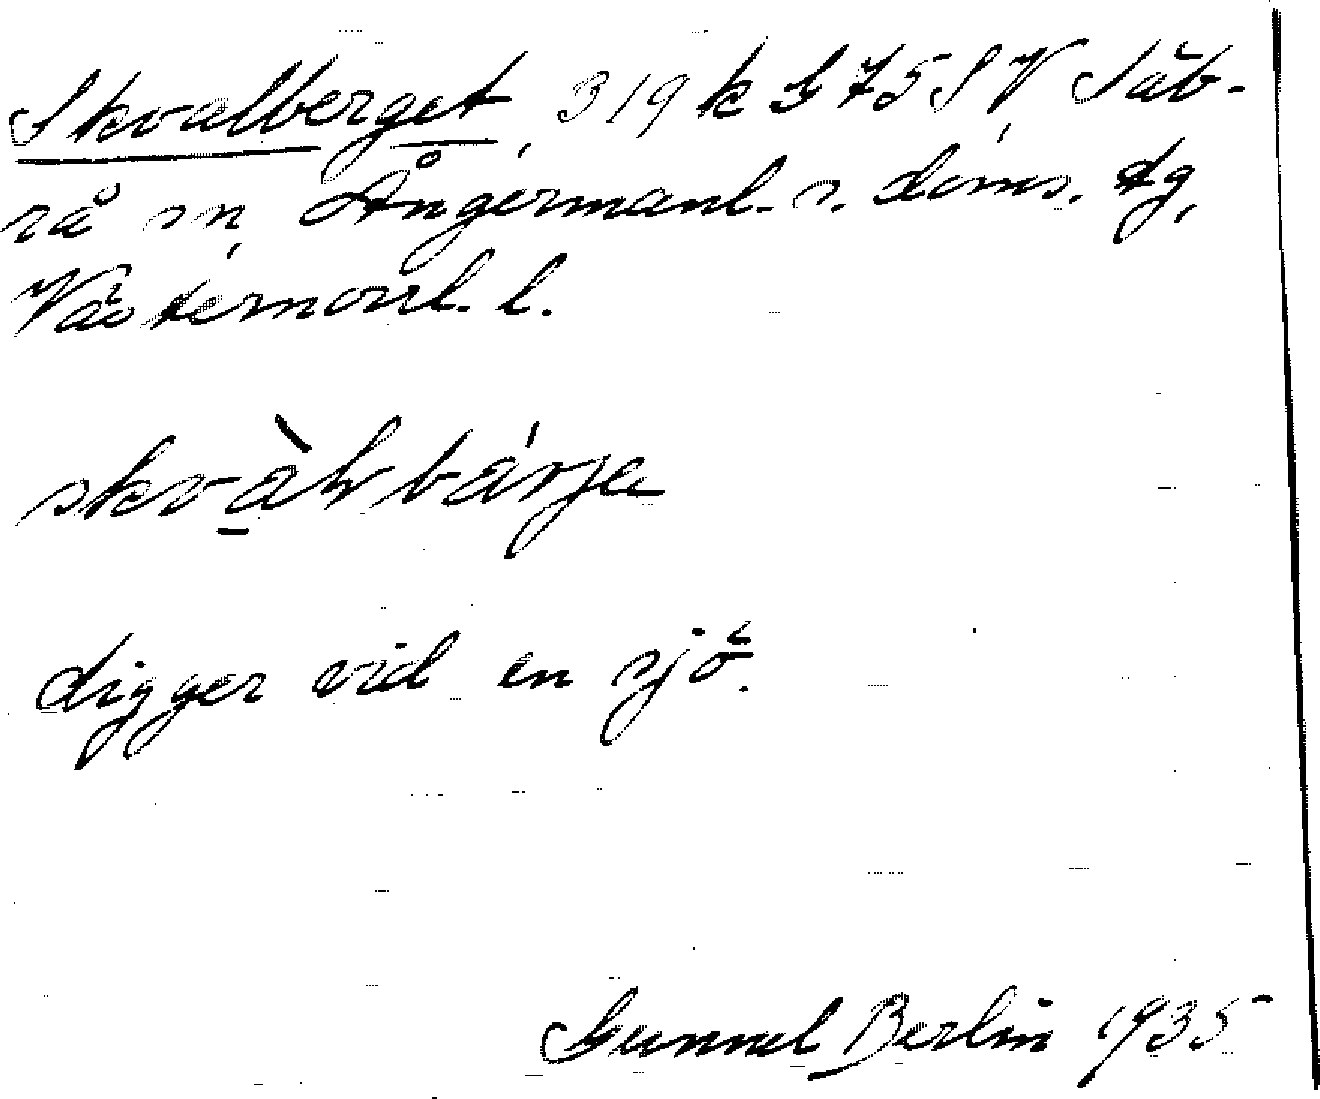 Skvalberget, 319 k G 75 SV, Säb-
rå sn, Ångermanl. s. doms. dg,
Västernorrl. l.
skvàlvbárje
ligger vid en sjö.
Gunnel Berlin 1935